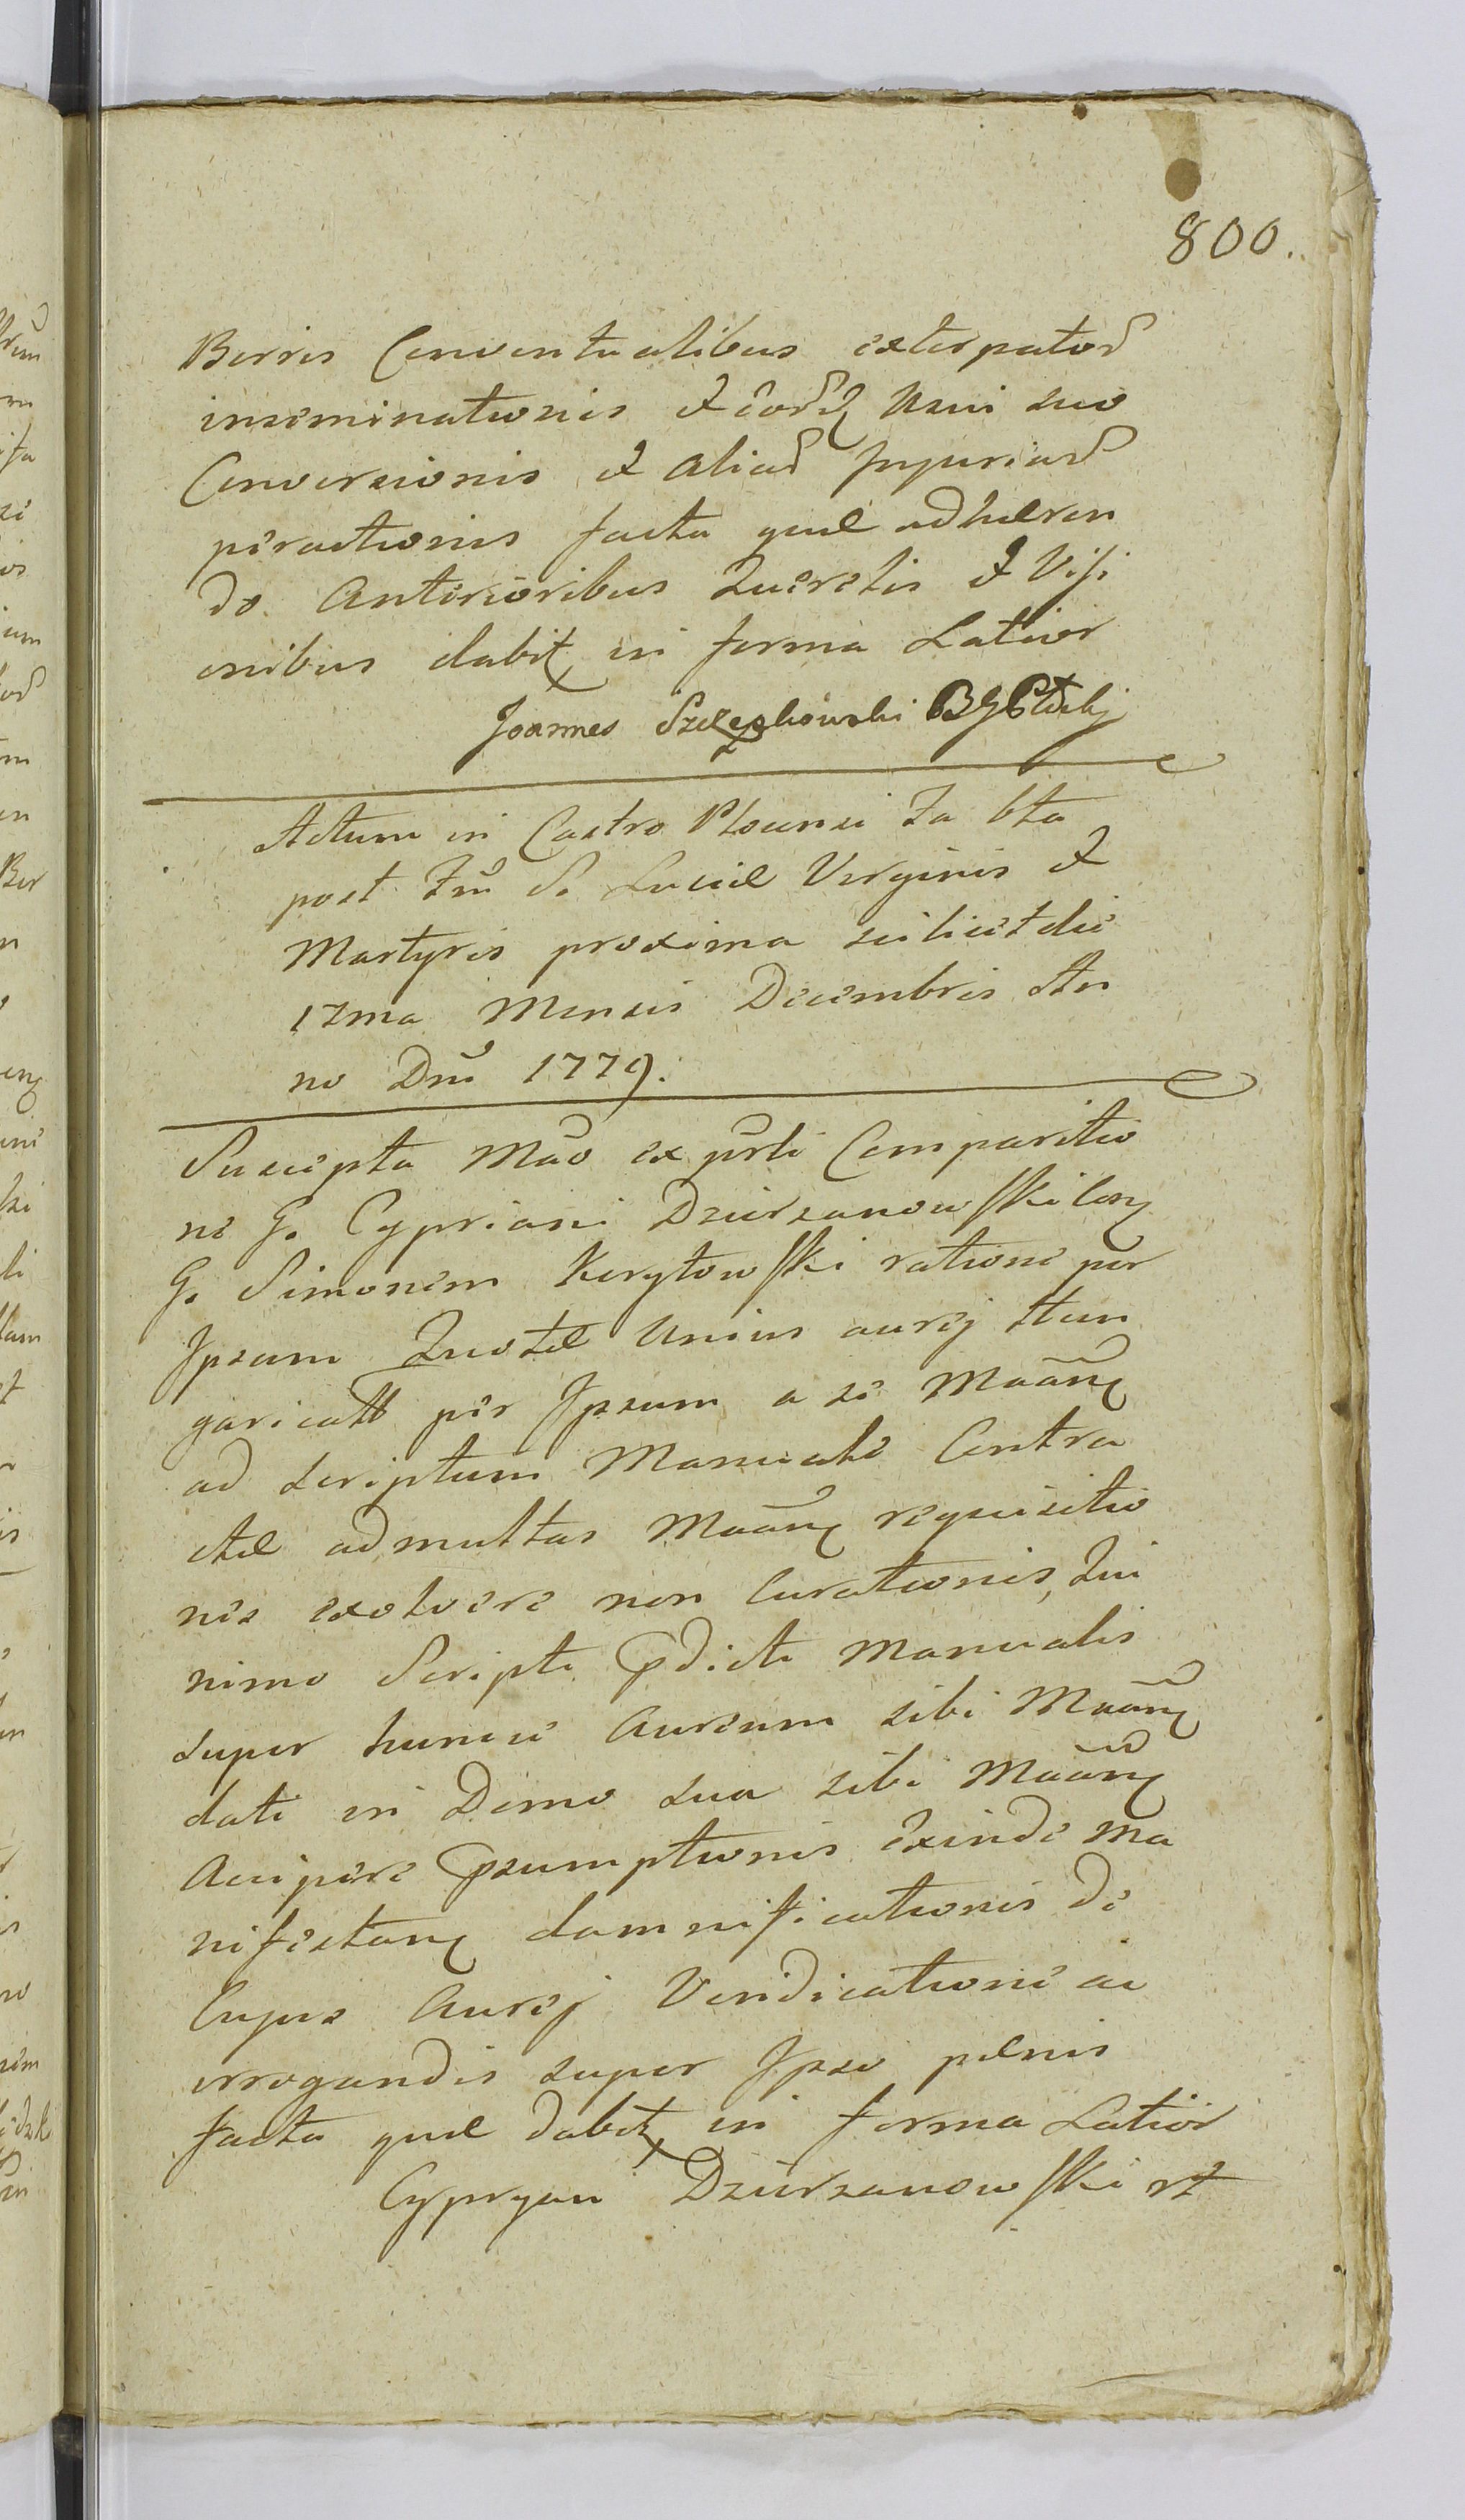 800.
Berris Conventualibus exterpator̃
inseminationis et eor̃dẽ Usui suo
Conversionis et aliar̃ Injuriar̃
peractionis facta quæ adhæren
do Anterioribus Querelis et Visi
onibus dabit̃ in forma Latior
Joannes Szczepkowski BGPłcki
Actum in Castro Plocensi Fa 6ta
post Fm̃ S. Luciæ Virginis et
Martyris proxima scilicet die
17ma Mensis Decembris An
no Dni 1779.
Suscepta Mão ex pṽli Comparitio
ne G. Cypriani Dziurzanowski con̨
G. Simonem Korytowski ratione per
Ipsum Quotæ Unius aurej Hun
garicall per Ipsum a se Maañ
ad scriptum Manuale Contra
ctæ ad multas Maañ requisitio
nes exolvere non Curationis, Qui
nimo Scripti p̃dicti Manualis
super huncce Aureum sibi Maañ
dati in Domo sua sibi Maañ
Accipere p̃sumptionis exinde ma
nifestan̨ damnificationis de
Cujus Aurej Vindicatione ac
irrogandis super Ipso pænis
facta quæ dabit̃ in forma Latior
Cypryan Dziurzanowski rt